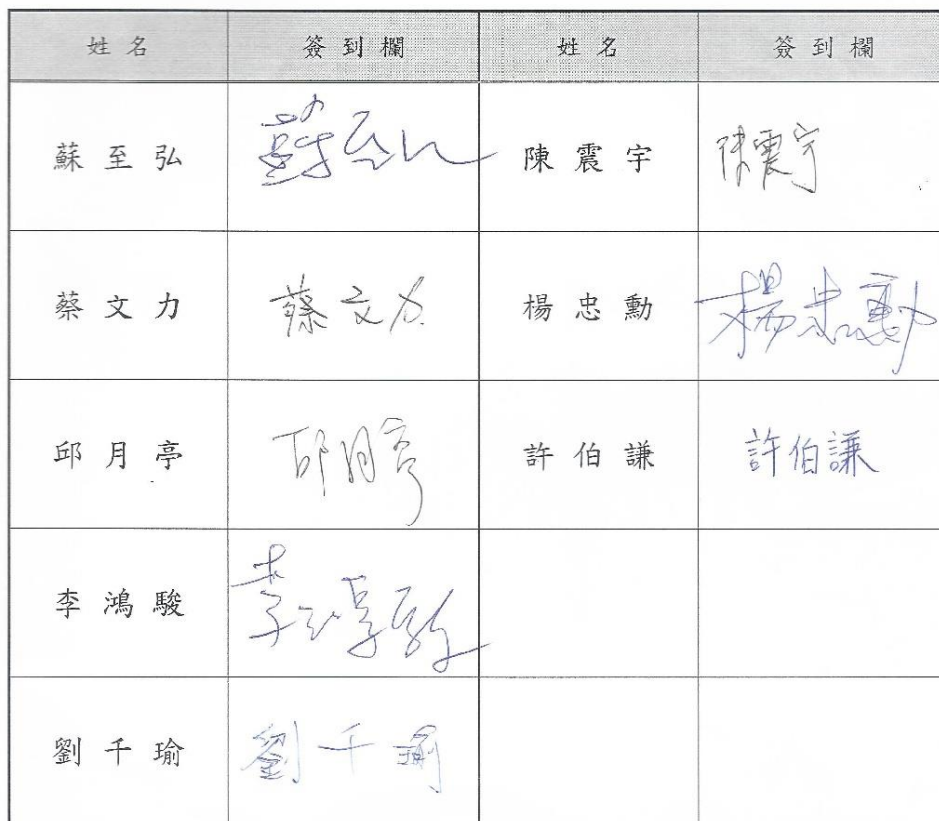 姓名 簽到欄 姓名 簽到欄
蘇至弘 蘇至弘 陳震宇 陳震宇
蔡文力 蔡文力 楊忠勳 楊忠勳
邱月亭 邱月亭 許伯謙 許伯謙
李鴻駿 李鴻駿
劉千瑜 劉千瑜